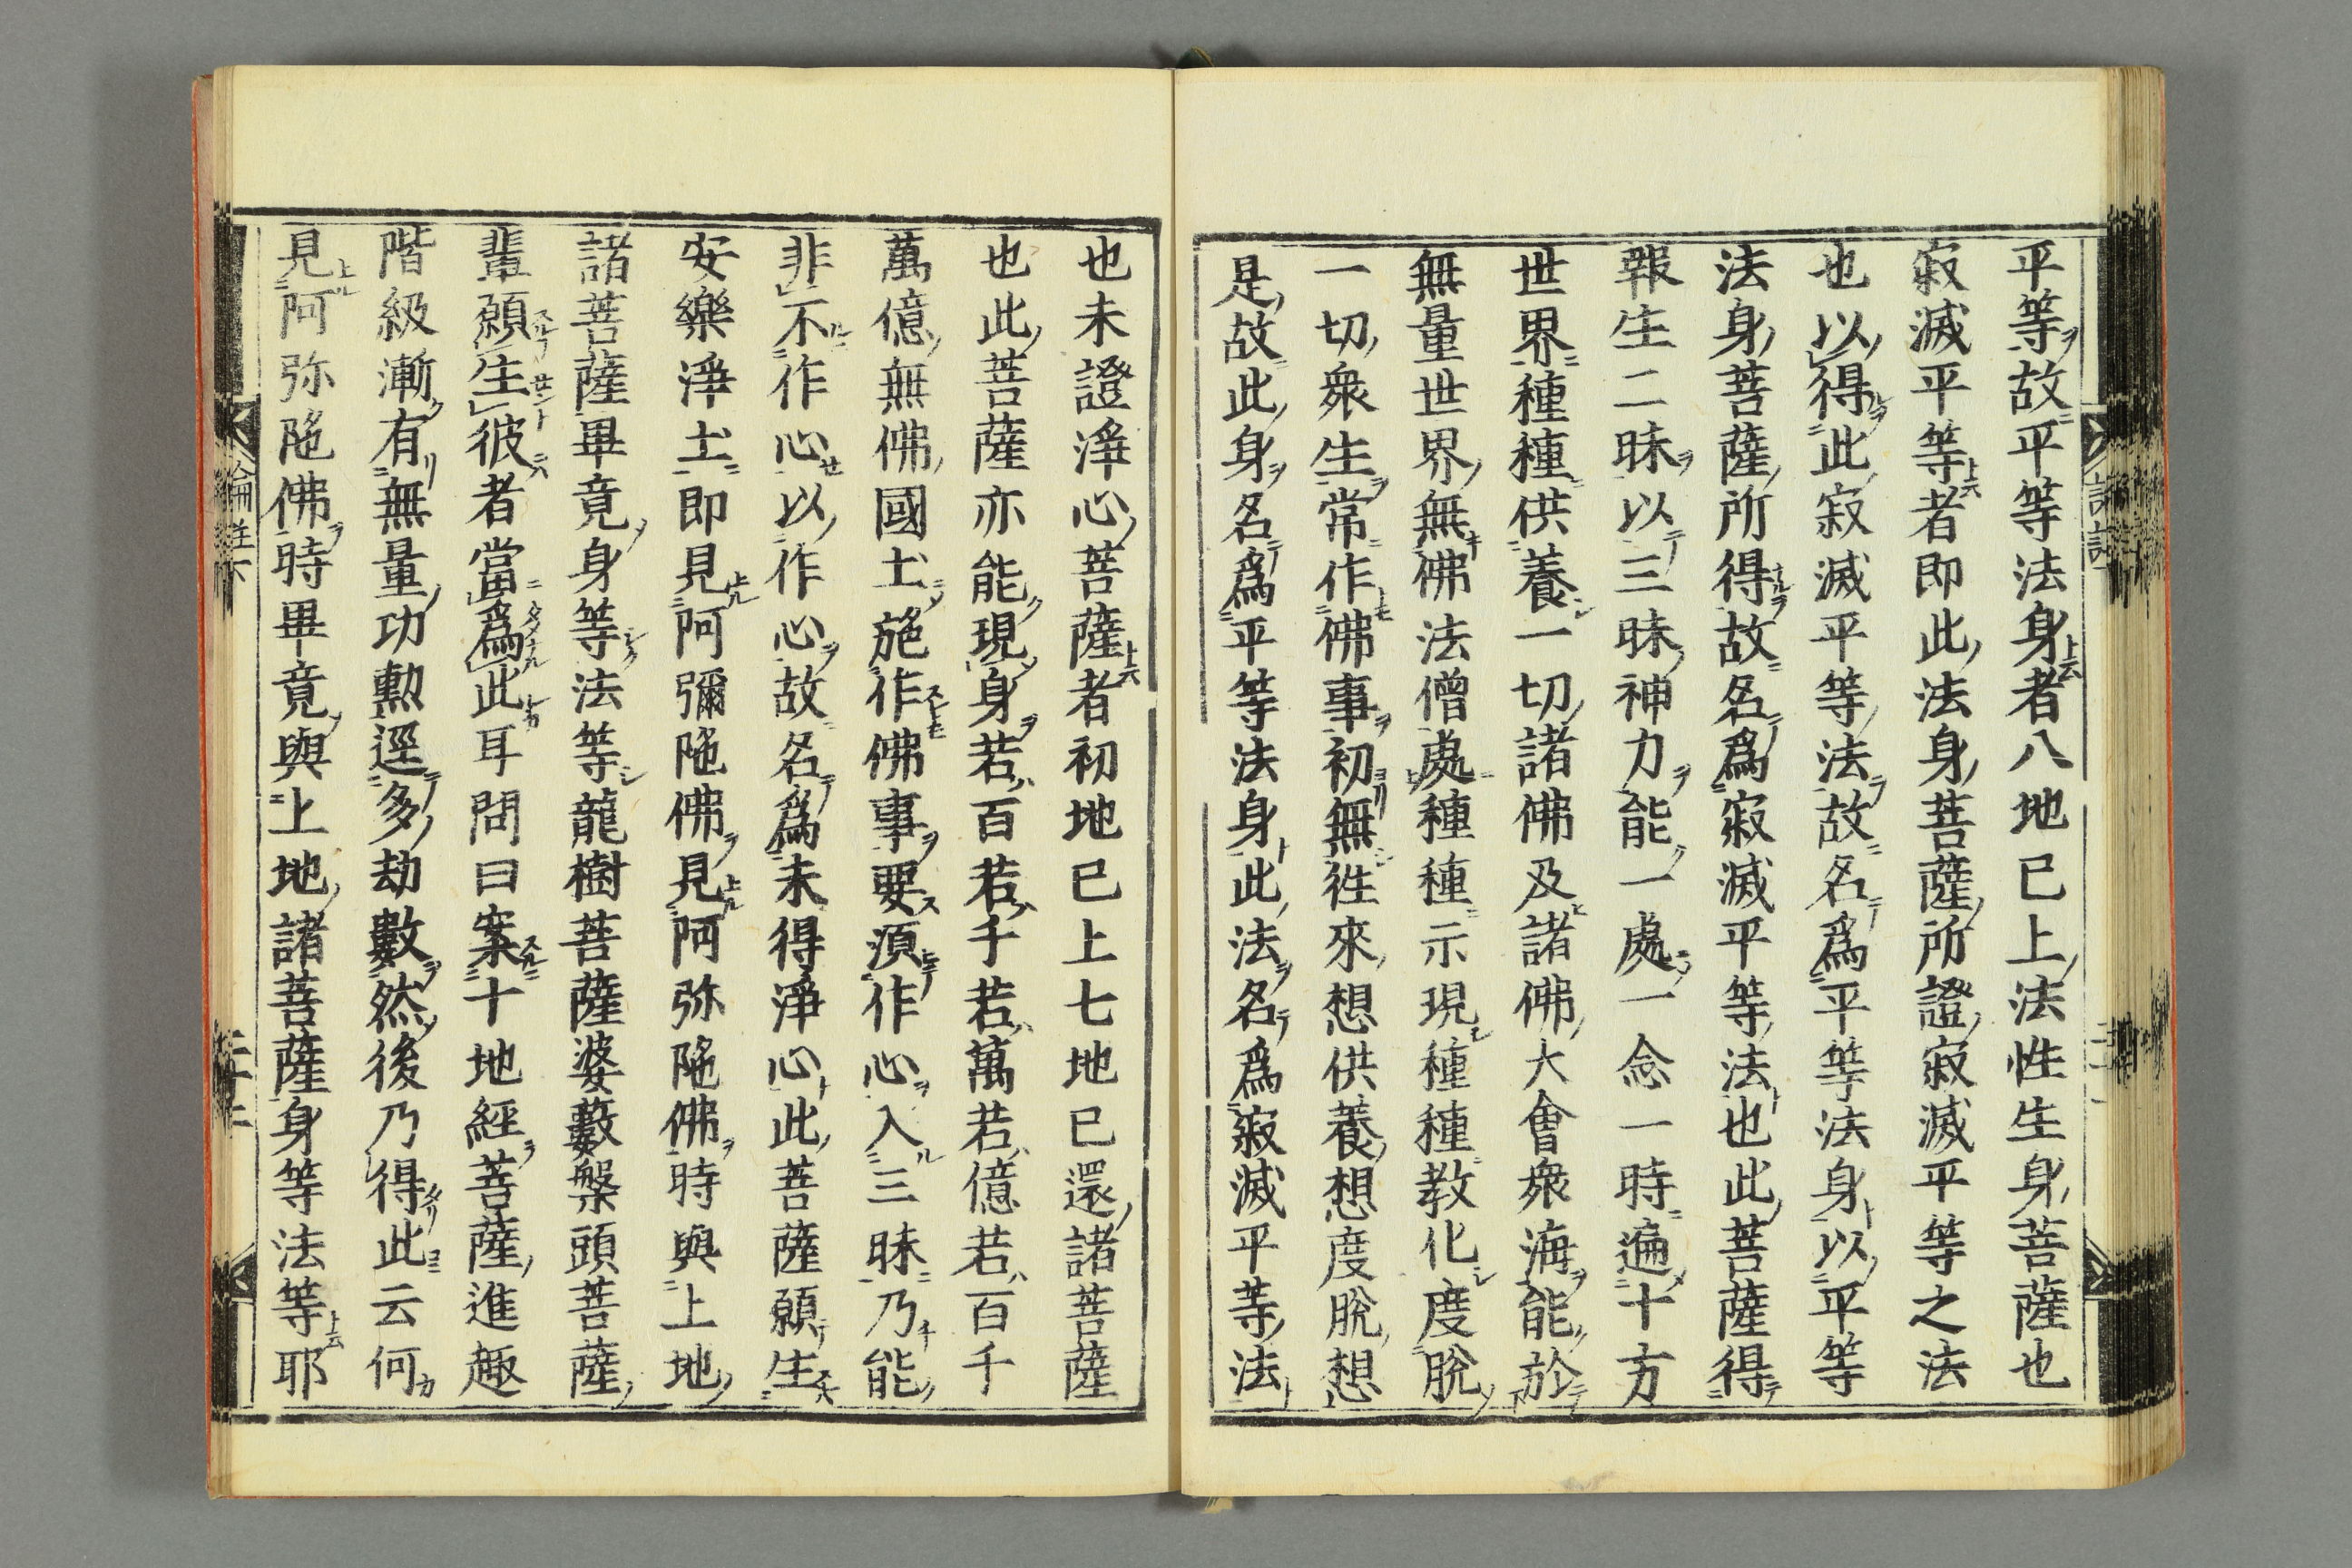 平等故平等法身者八地已上法性生身菩薩也
寂滅平等者即此法身菩薩所證寂滅平等之法
也以得此寂滅平等法故名爲平等法身以平等
法身菩薩所得故名爲寂滅平等法也此菩薩得
報生三昧以三昧神力能一處一念一時遍十方
世界種種供養一切諸佛及諸佛大會衆海能於
無量世界無佛法僧處種種示現種種教化度脫
一切衆生常作佛事初無徃來想供養想度脫想
是故此身名爲平等法身此法名爲寂滅平等法
也未證淨心菩薩者初地已上七地已還諸菩薩
也此菩薩亦能現身若百若千若萬若億若百千
萬億無佛國土施作佛事要須作心入三昧乃能
非不作心以作心故名爲未得淨心此菩薩願生
安樂淨土即見阿彌陁佛見阿弥陁佛時與上地
諸菩薩畢竟身等法等龍樹菩薩婆藪槃頭菩薩
輩願生彼者當爲此耳問曰案十地經菩薩進趣
階級漸有無量功勲逕多劫數然後乃得此云何
見阿弥陁佛時畢竟與上地諸菩薩身等法等耶
論註下